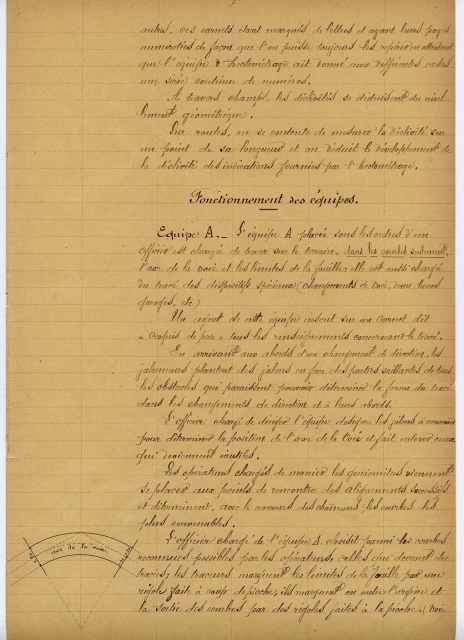 autres, ces carnets étant marqués de lettres et ayant leurs pages
numérotées de façon que l'on puisse toujours les repérer en attendant
que l'équipe d'Hectométrage ait donné aux différentes cases
un série continue de numéros.
A travers champs, les déclivités se déduisent du nivel-
lement géométrique.
Sur routes, on se contente de mesurer la déclivité sur
un point de sa longueur et on déduit le développement de
la déclivité des indications fournies par l'hectométrage.
Fonctionnement des équipes.
Equipe A._ L'équipe A placée sous les ordres d'un
officier est chargée de tracer sur le terrain, dans les courbes seulement,
l'axe de la voie et les limites de la fouille; elle est aussi chargée
du tracé des dispositifs spéciaux (changements de voie,
garages, etc)
Un agent de cette équipe inscrit sur un carnet dit
"Croquis de " tous les renseignements concernant le tracé.
En arrivant aux abords d'un changement de direction, les
jalonneurs plantent des jalons en face des parties saillantes de tous
les obstacles qui paraissent pouvoir déterminer la forme du tracé
dans les changements de direction et à leurs abords.
L'officier chargé de diriger l'équipe désigne les jalons à conserver
pour déterminer la position de l'axe de la Voie et fait enlever ceux
qui deviennent inutiles.
Les opérateurs chargés de manier les goniomètres viennent
se placer aux points de rencontre des alignements successifs
et déterminent, avec le concours des chaîneurs les courbes les
plus convenables.
L'officier chargé de l'équipe A choisit parmi les courbes
reconnues possibles par les opérateurs, celles qui devront être
tracées; les traceurs marquent les limites de la fouille par une
rigole faite à coups de pioche; ils marquent en outre l'origine et
la sortie des courbes par des rigoles faites à la pioche. (Voir
axe de la voie